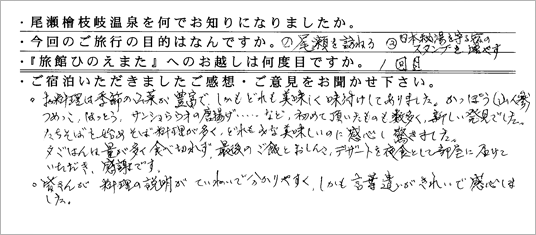 ・尾瀬檜枝岐温泉を何でお知りになりましたか。
・今回のご旅行の目的はなんですか。① 尾瀬を訪ねる ② 日本秘湯を守る宿のスタンプを増やす
・『旅館ひのえまた』へのお越しは何度目ですか。 1回目
・ご宿泊いただきましたご感想・ご意見をお聞かせ下さい。
。お料理は季節の山菜が豊富で、しかもどれも美味しく味付けしてありました。かっぽう(山人参)
つめっこ、はっとう、サンショウウオの唐揚げ……など、初めて頂いたものも数多く、新しい発見でした。
たちそばを始めそば料理が多く、どれもみな美味しいのに感心し驚きました。
夕ごはんは量が多く食べ切れず、最後のご飯とおしんこ、デザートを夜食として部屋に届けて
いただき、感謝です。
。皆さんが料理の説明がていねいで分かりやすく、しかも言葉遣いがきれいで感心しま
した。